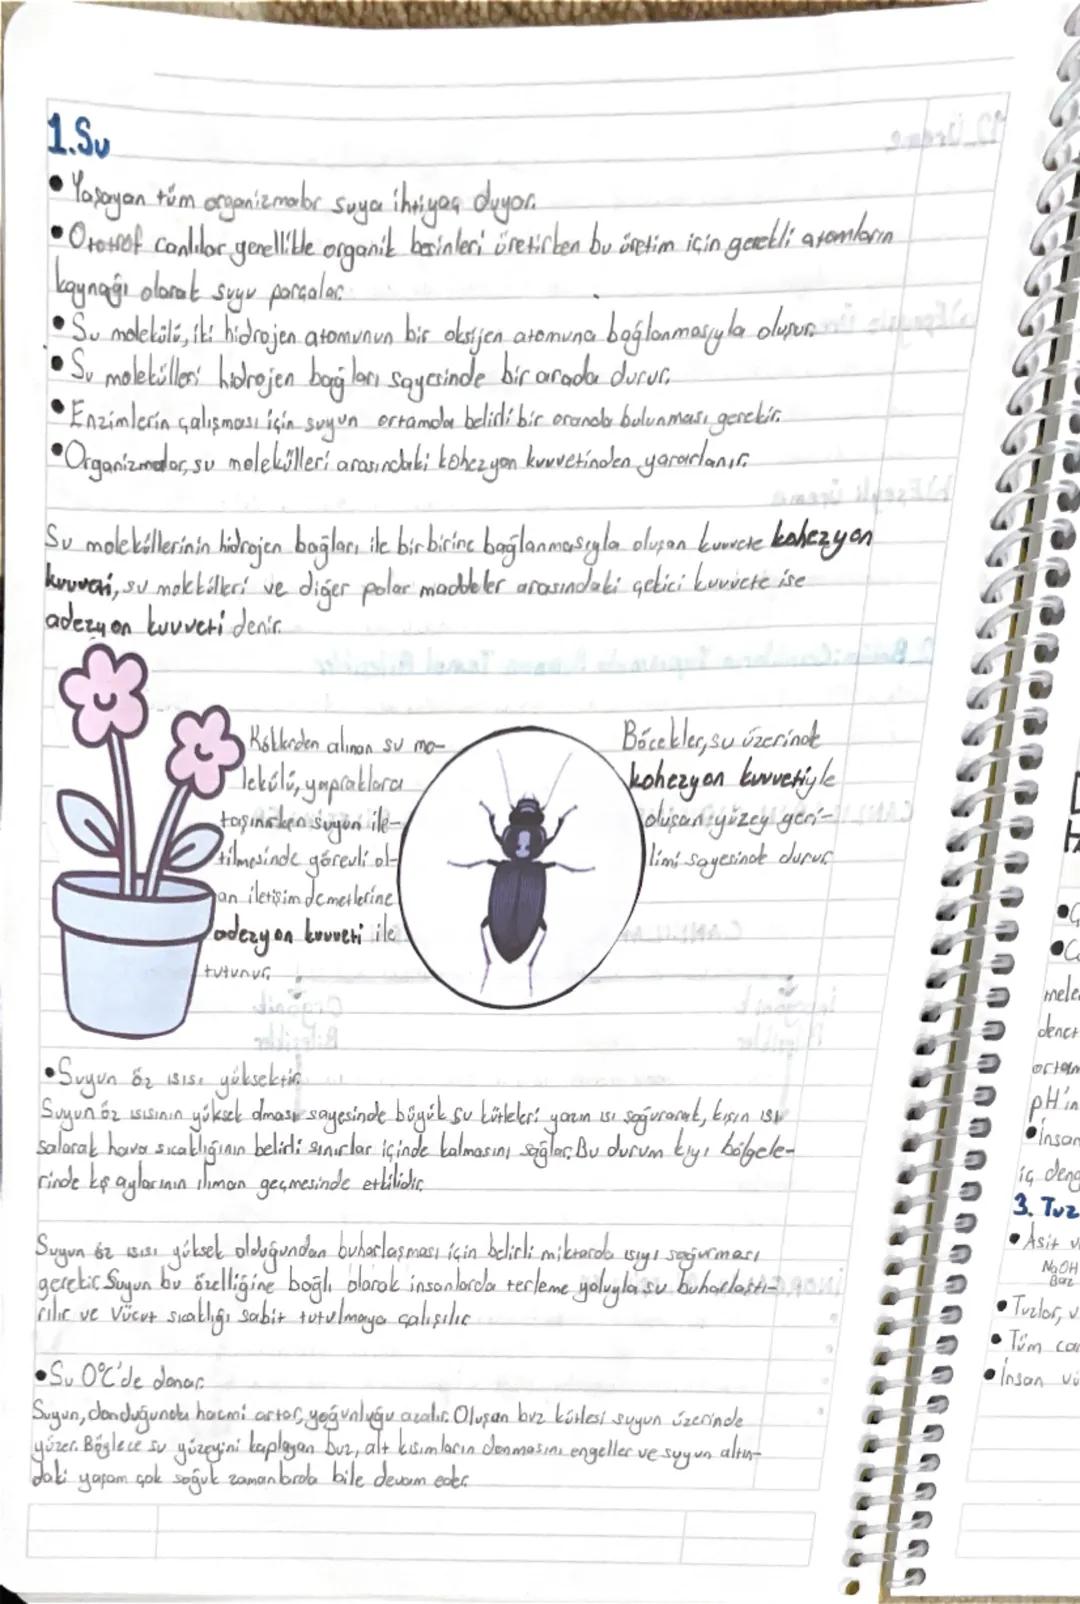 1.Su
• Yaşayan tüm organizmalar suya ihtiyaç duyar.
• Ototrof canlılar genellikle organik besinleri üretirken bu üretim için gerekli atomların
kaynağı olarak suyu parçalar.
• Su molekülü, iki hidrojen atomunun bir oksijen atomuna bağlanmasıyla oluşur.
• Su molekülleri hidrojen bağları sayesinde bir arada durur.
• Enzimlerin çalışması için suyun ortamda belirli bir oranda bulunması gerekir.
• Organizmalar, su molekülleri arasındaki kohezyon kuvvetinden yararlanır.
Su moleküllerinin hidrojen bağları ile birbirine bağlanmasıyla oluşan kuvvete kohezyon
kuvveti, su molekülleri ve diğer polar maddeler arasındaki çekici kuvvete ise
adezyon kuvveti denir.
Köklerden alınan su mo-
lekülü, yapraklara
taşınırken suyun ile-
tilmesinde görevli ol-
an iletişim demetlerine
adezyon kuvveti ile
tutunur.
Böcekler, su üzerinde
kohezyon kuvvetiyle
oluşan yüzey geri-
limi sayesinde durur.
• Suyun öz ısısı yüksektir.
Suyun öz ısısının yüksek olması sayesinde büyük su kütleleri yazın ısı soğurarak, kışın ısı
salarak hava sıcaklığının belirli sınırlar içinde kalmasını sağlar. Bu durum kıyı bölgele-
rinde kış aylarının ılıman geçmesinde etkilidir.
Suyun öz ısısı yüksek olduğundan buharlaşması için belirli miktarda ısıyı soğurması
gerekir. Suyun bu özelliğine bağlı olarak insanlarda terleme yoluyla su buharlaştı-
rılır ve vücut sıcaklığı sabit tutulmaya çalışılır.
• Su 0°C'de donar.
Suyun, donduğunda hacmi artar, yoğunluğu azalır. Oluşan buz kütlesi suyun üzerinde
yüzer. Böylece su yüzeyini kaplayan buz, alt kısımların donmasını engeller ve suyun altın-
daki yaşam çok soğuk zamanlarda bile devam eder.
pH'in
• İnsan
iç deng
3. Tuz
• Asit v
NaOH
Baz
• Tuzlar, v
• Tüm ca
• İnsan vü